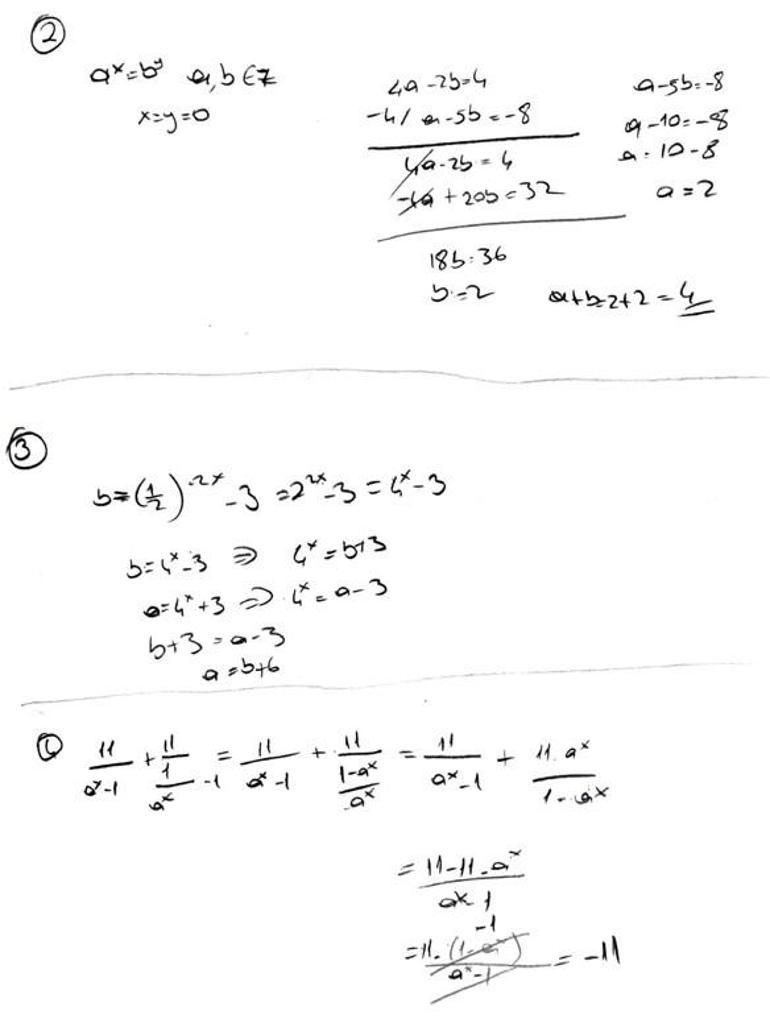 ②
aˣ=bʸ a,b∈Z
x=y=0
4a-2b=4
-4/ a-5b=-8
4a-2b=4
-4a+20b=32
18b=36
b=2
a-5b=-8
a-10=-8
a=10-8
a=2
a+b=2+2=4
③
b=(1/2)⁻²ˣ-3=2²ˣ-3=4ˣ-3
b=4ˣ-3 ⇒ 4ˣ=b+3
a=4ˣ+3 ⇒ 4ˣ=a-3
b+3=a-3
a=b+6
11/(aˣ-1) + 11/(1/aˣ -1) = 11/(aˣ-1) + 11/((1-aˣ)/aˣ) = 11/(aˣ-1) + 11.aˣ/(1-aˣ)
= (11-11.aˣ)/(aˣ-1)
-1
=11.(1-aˣ)/(aˣ-1) = -11